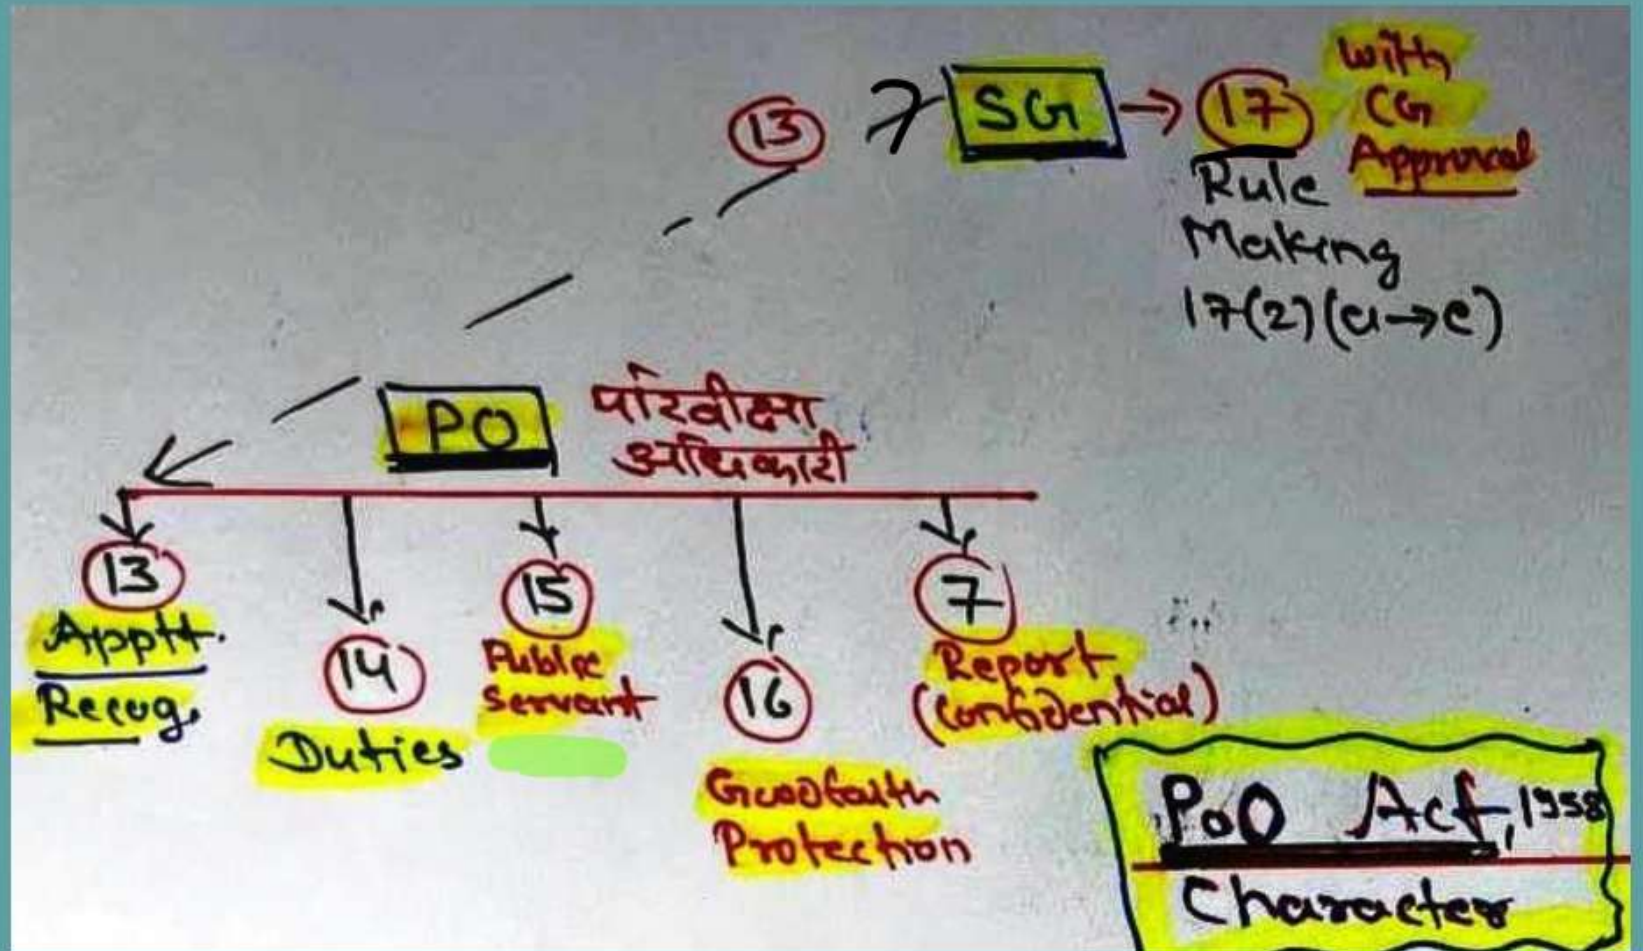 13
SG → 17
with
CG
Approval
Rule
Making
17(2)(a→e)
PO
परिवीक्षा
अधिकारी
13
Apptt.
Recog.
14
Duties
15
Public
Servant
16
Goodfaith
Protection
7
Report
(Confidential)
PoO Act, 1958
Character